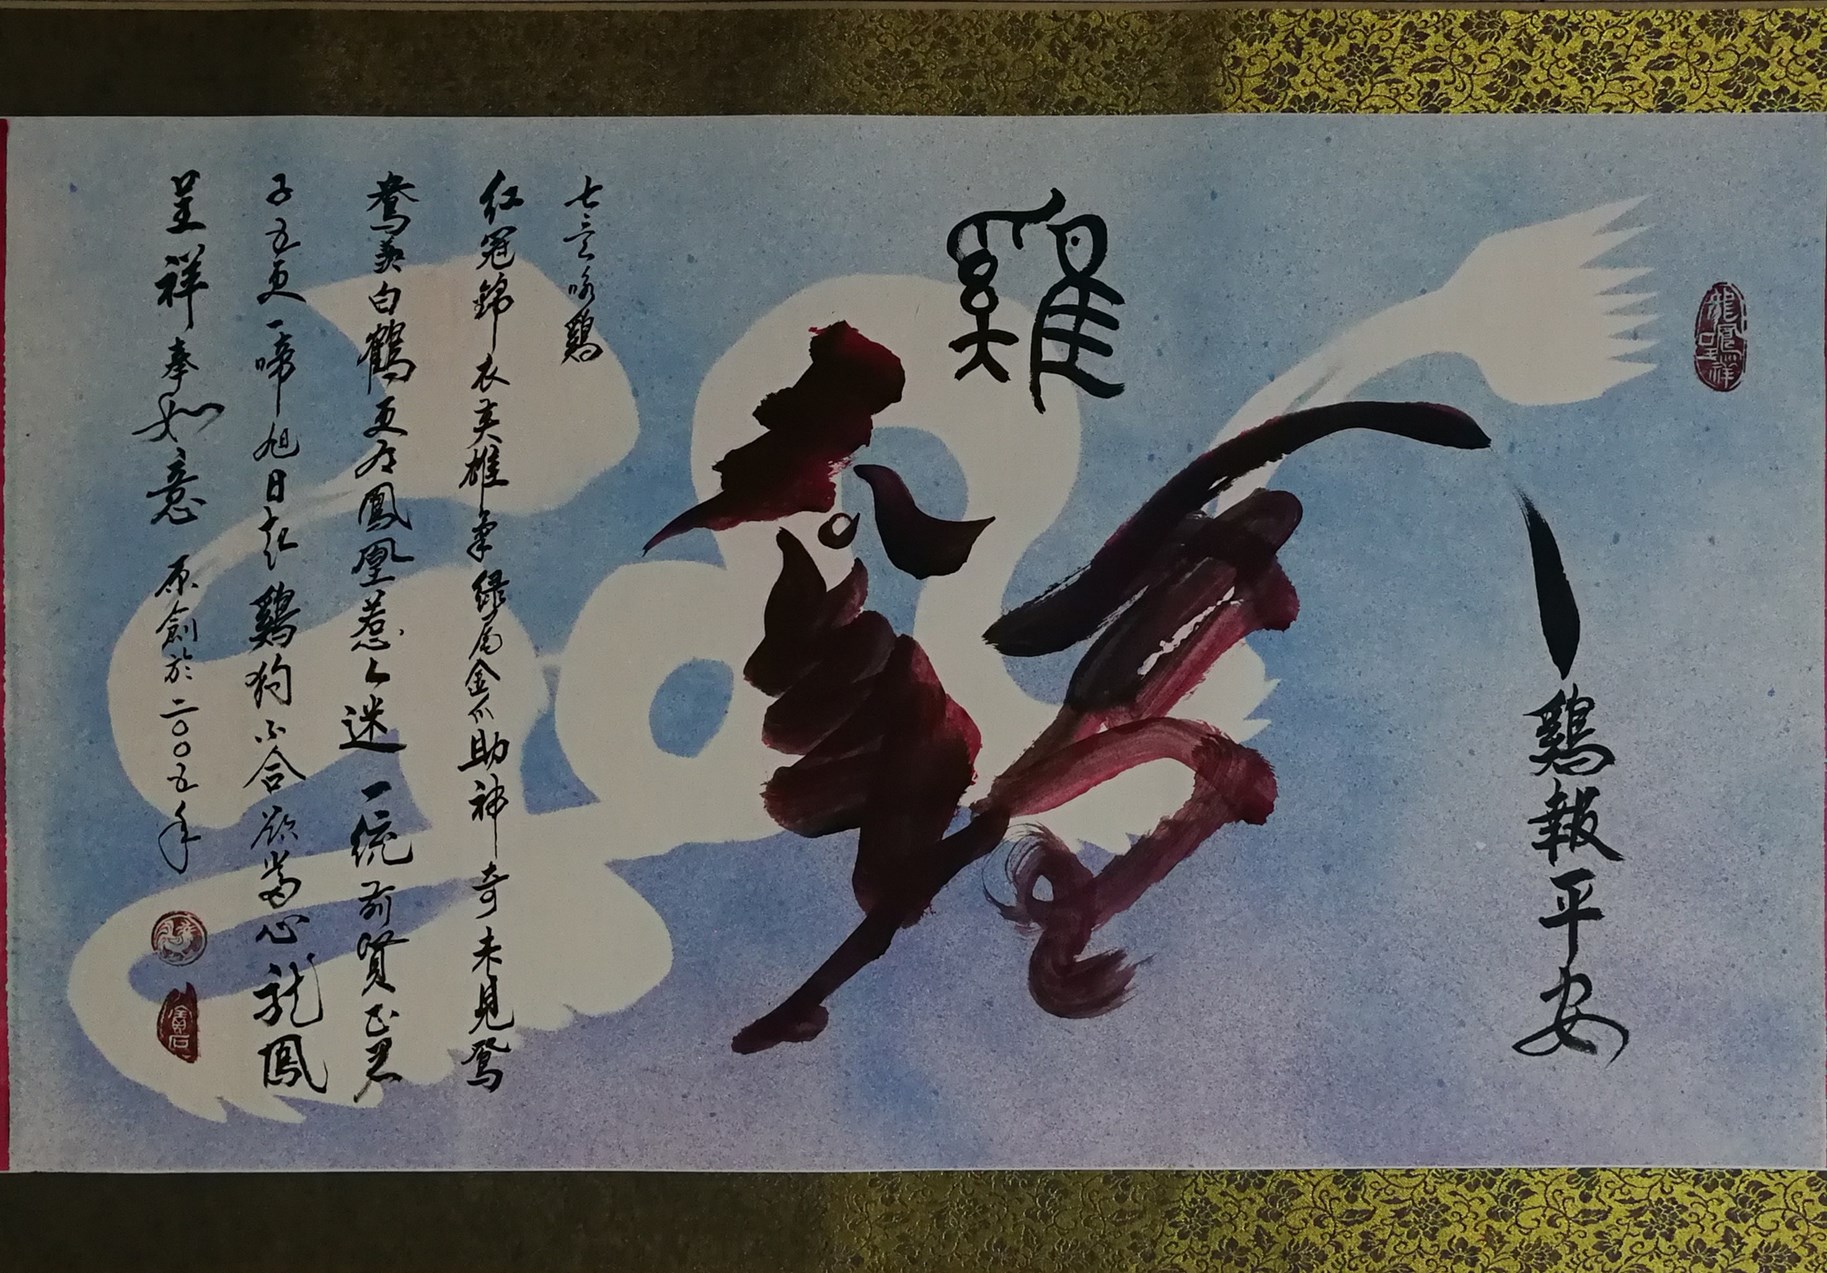 龍鳳呈祥
鷄報平安
雞
七言咏鷄
紅冠錦衣英雄氣綠尾金爪助神奇未見鴛
鴦羡白鶴更有鳳凰惹人迷一統前賢正君
子五更一啼旭日起鷄狗不合欲當心龍鳳
呈祥奉如意 原創於二〇〇五年
寶石